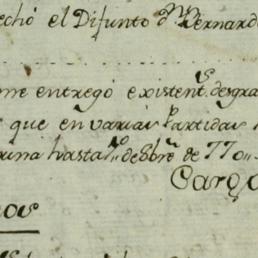 echó el Difunto Dn Bernard
me entregó existents desgra
que en varias Partidas
rina hasta 1o de Sbre de 770
Cargo
nos